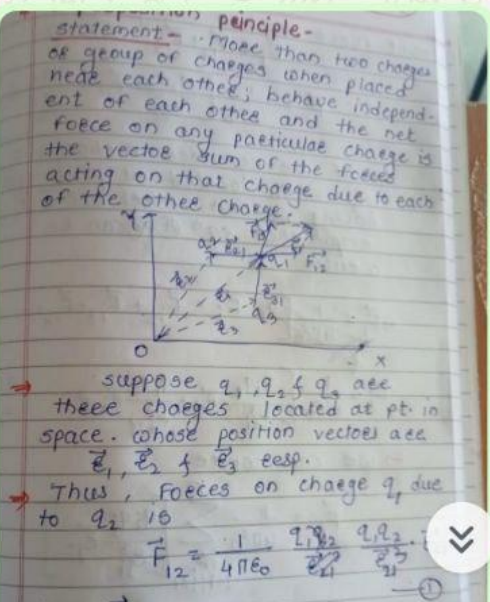 principle-
statement- More than two charges
or group of charges when placed
near each other; behave independ-
ent of each other and the net
force on any particular charge is
the vector sum of the forces
acting on that charge due to each
of the other charge.
Y
F₁₃
q₂ r₂₁ q₁ F₁₂
r₂ r₁ r₃₁
q₃
r₃
O
X
→ suppose q₁, q₂ & q₃ are
three charges located at pt. in
space. whose position vectors are
r⃗₁, r⃗₂ & r⃗₃ resp.
→ Thus, Forces on charge q₁ due
to q₂ is
F⃗₁₂ = 1/4πε₀ q₁q₂/r₂₁³
①